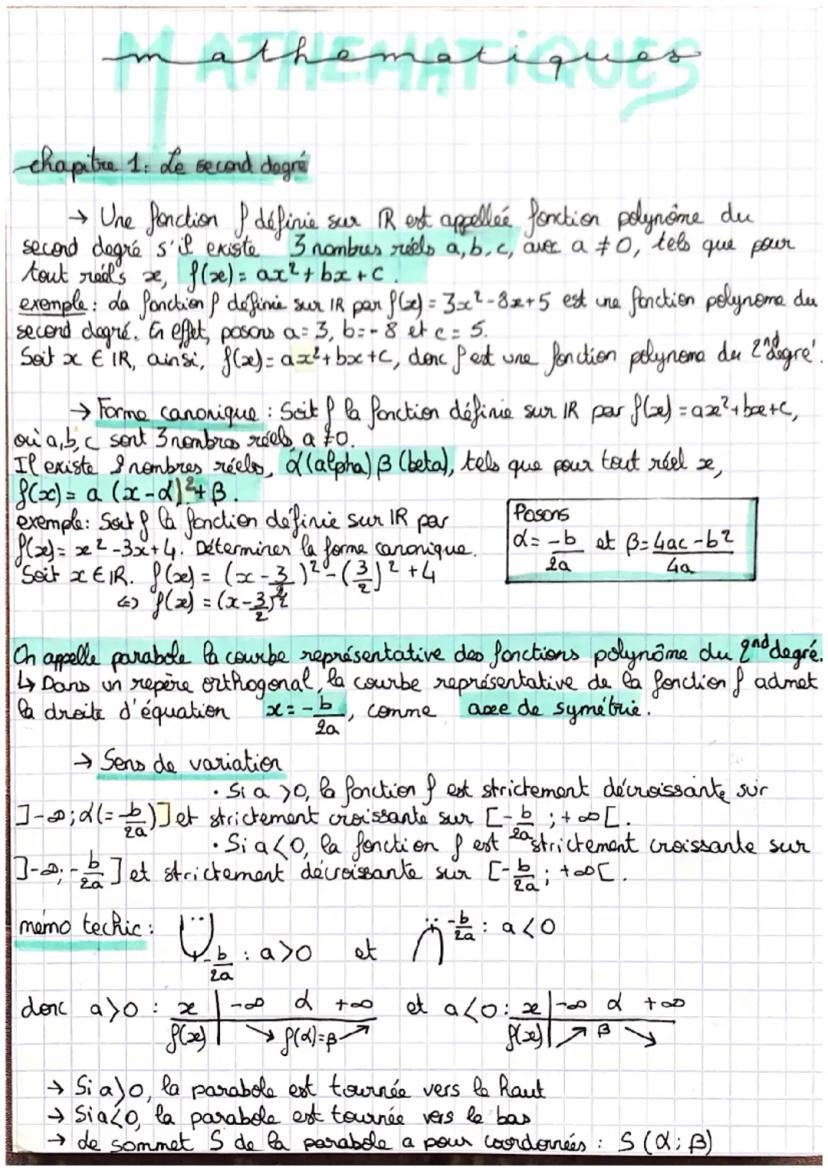 MATHEMATIQUES
mathematiques
chapitre 1: Le second degré
→ Une fonction f définie sur ℝ est appelleé fonction polynôme du
second degré s'il existe 3 nombres réels a, b, c, avec a ≠ 0, tels que pour
tout réels x, f(x) = ax² + bx + c.
exemple: La fonction f définie sur ℝ par f(x) = 3x² - 8x + 5 est une fonction polynome du
second degré. En effet, posons a = 3, b = -8 et c = 5.
Soit x ∈ ℝ, ainsi, f(x) = ax² + bx + c, donc f est une fonction polynome du 2nd degré.
→ Forme canonique : Soit f la fonction définie sur ℝ par f(x) = ax² + bx + c,
où a, b, c sont 3 nombres réels a ≠ 0.
Il existe 2 nombres réels, α (alpha) β (beta), tels que pour tout réel x,
f(x) = a (x - α)² + β.
exemple: Soit f la fonction définie sur ℝ par
f(x) = x² - 3x + 4. Déterminer la forme canonique.
Soit x ∈ ℝ. f(x) = (x - 3/2)² - (3/2)² + 4
⇔ f(x) = (x - 3/2)²
Posons
α = -b/2a et β = 4ac - b²/4a
On appelle parabole la courbe représentative des fonctions polynôme du 2nd degré.
↳ Dans un repère orthogonal, la courbe représentative de la fonction f admet
la droite d'équation x = -b/2a, comme axe de symétrie.
→ Sens de variation
· Si a > 0, la fonction f est strictement décroissante sur
]-∞; α (= -b/2a)] et strictement croissante sur [-b/2a ; +∞[.
· Si a < 0, la fonction f est strictement croissante sur
]-∞; -b/2a] et strictement décroissante sur [-b/2a ; +∞[.
mémo techic : -b/2a : a > 0 et -b/2a : a < 0
donc a > 0 : x | -∞ α +∞ et a < 0 : x | -∞ α +∞
f(x) | ↘ f(α)=β ↗ f(x) | ↗ β ↘
→ Si a > 0, la parabole est tournée vers le haut
→ Si a < 0, la parabole est tournée vers le bas
→ de sommet S de la parabole a pour coordonnées : S (α ; β)